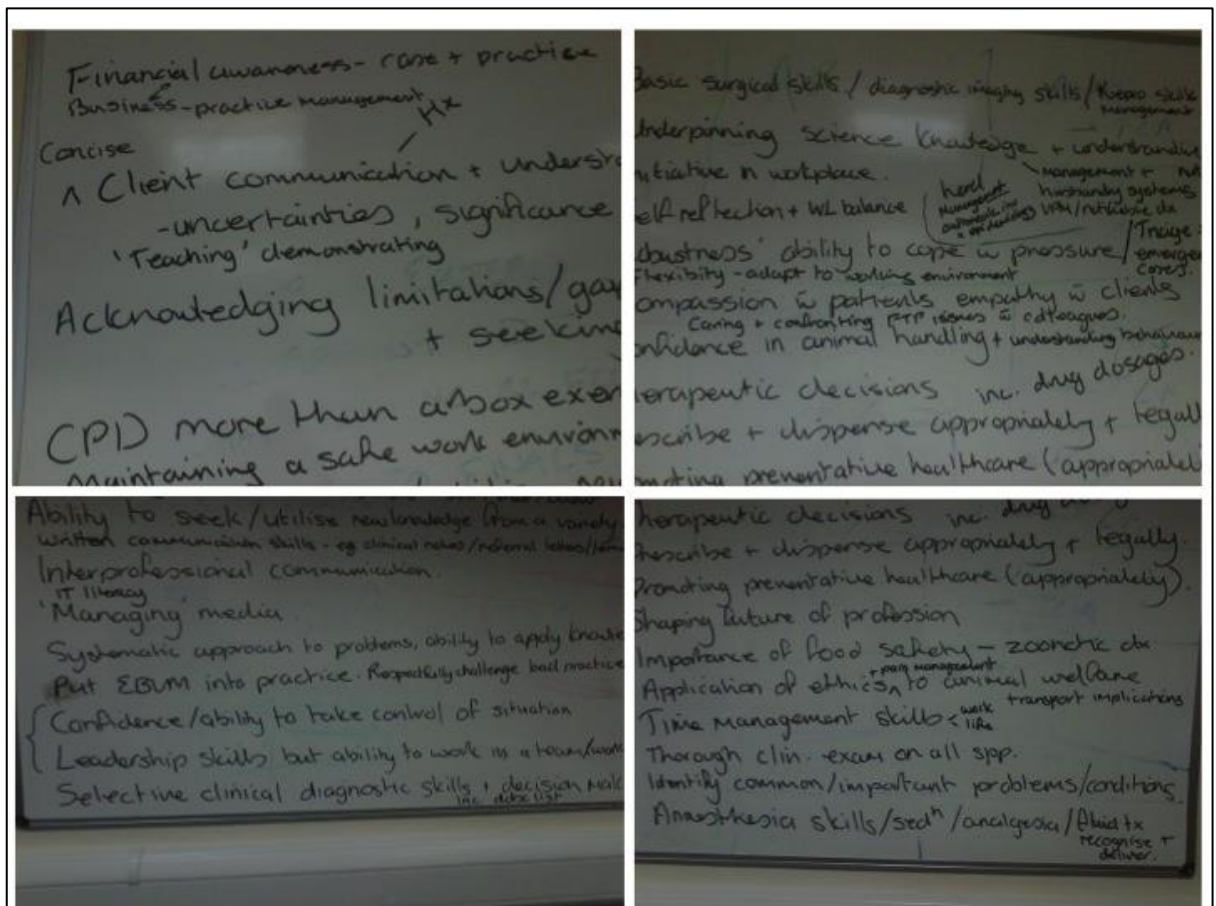 Financial awareness - case + practice
Business - practice management
Hx
Concise
^ Client communication + underst
- uncertainties, significance
'Teaching' demonstrating
Acknowledging limitations/ga
+ seekin
CPD more than a box exer
Maintaining a safe work environm
Basic surgical skills / diagnostic imaging skills / Repro skills
management
Underpinning science knowledge + understanding
management +
initiative in workplace.
husbandry systems
herd
management
elf reflection + WL balance
obustness' ability to cope w pressure / Triage
emergen
cases.
Flexibity - adapt to working environment
ompassion w patients empathy w clients
Caring + confronting FTP issues w colleagues.
onfidence in animal handling + understanding behaviour
erapeutic decisions inc. drug dosages.
escribe + dispense appropriately + legall
moting preventative healthcare (appropriatel
Ability to seek/utilise new knowledge from a variety
Written communication skills - eg clinical notes/referral letters/
Interprofessional communication.
IT literacy
'Managing' media
Systematic approach to problems, ability to apply knowle
Put EBVM into practice. Respectfully challenge bad practice
Confidence/ability to take control of situation
Leadership skills but ability to work in a team/work
Selective clinical diagnostic skills + decision mak
inc ddx list
Therapeutic decisions inc. drug
Prescribe + dispense appropriately + legally.
Promoting preventative healthcare (appropriately).
Shaping future of profession
Importance of food safety - zoonotic dx
+ pain management
Application of ethics ^ to animal welfare
+ transport implications
Time management skills < work
life
Thorough clin. exam on all spp.
Identify common/important problems/conditions
Anaesthesia skills/sedn/analgesia/fluid tx
recognise +
deliver.